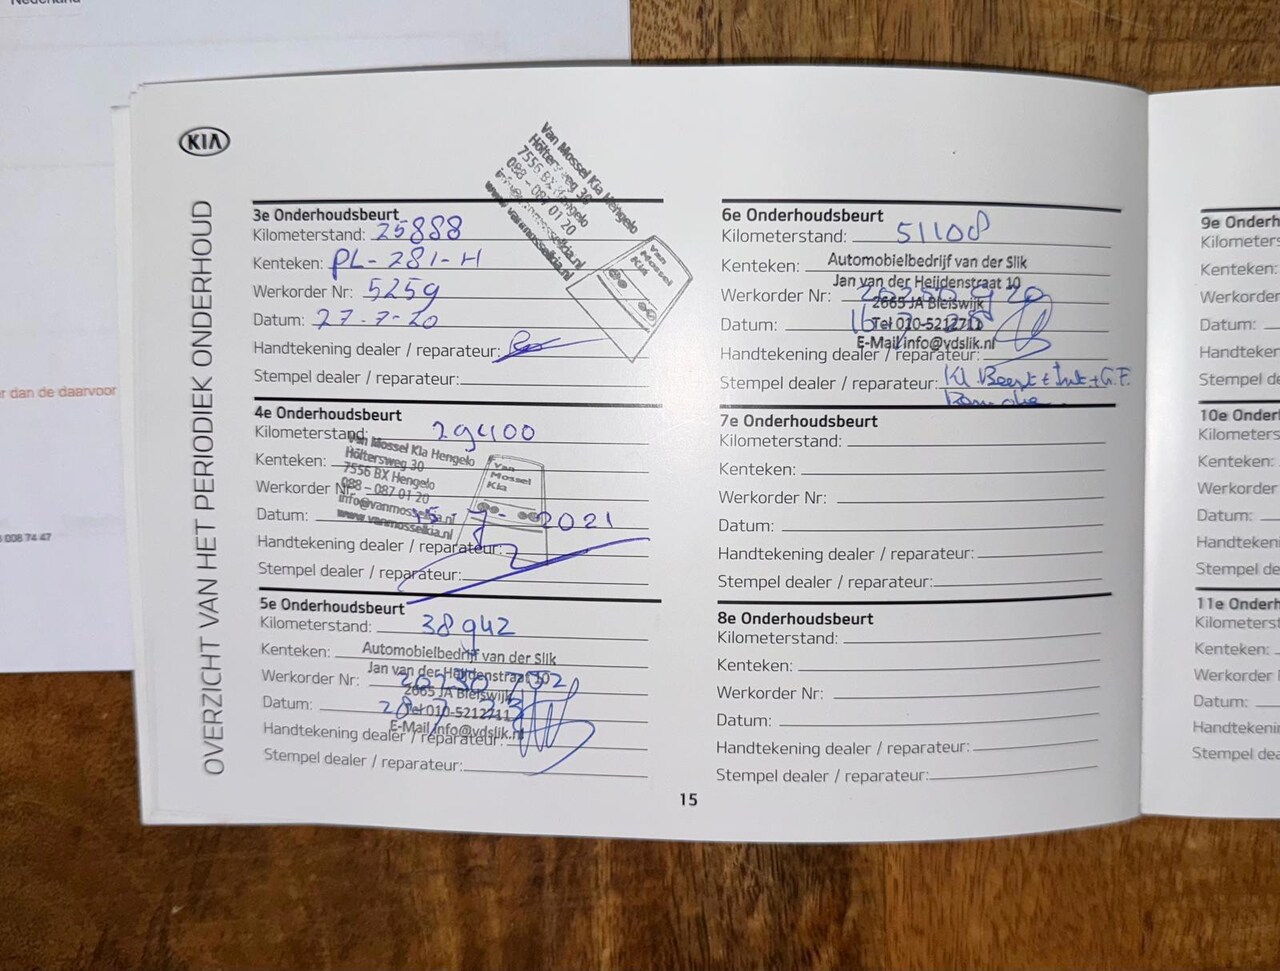 Nederland
r dan de daarvoor
008 74 47
KIA
OVERZICHT VAN HET PERIODIEK ONDERHOUD
3e Onderhoudsbeurt
Kilometerstand: 25888
Kenteken: PL-281-H
Werkorder Nr: 5259
Datum: 27-7-20
Handtekening dealer / reparateur:
Stempel dealer / reparateur:
Van Mossel Kia Hengelo
Höltersweg 30
7556 BX Hengelo
088 - 087 01 20
info@vanmosselkia.nl
www.vanmosselkia.nl
Van
Mossel
Kia
4e Onderhoudsbeurt
Kilometerstand: 29400
Kenteken:
Werkorder Nr:
Datum: 15-7-2021
Handtekening dealer / reparateur:
Stempel dealer / reparateur:
Van Mossel Kia Hengelo
Höltersweg 30
7556 BX Hengelo
088 - 087 01 20
info@vanmosselkia.nl
www.vanmosselkia.nl
Van
Mossel
Kia
5e Onderhoudsbeurt
Kilometerstand: 38942
Kenteken:
Werkorder Nr:
Datum:
Handtekening dealer / reparateur:
Stempel dealer / reparateur:
Automobielbedrijf van der Slik
Jan van der Heijdenstraat 10
2665 JA Bleiswijk
Tel 010-5212711
E-Mail info@vdslik.nl
6e Onderhoudsbeurt
Kilometerstand: 51108
Kenteken:
Werkorder Nr:
Datum:
Handtekening dealer / reparateur:
Stempel dealer / reparateur: Kl Beurt +
Automobielbedrijf van der Slik
Jan van der Heijdenstraat 10
2665 JA Bleiswijk
Tel 010-5212711
E-Mail info@vdslik.nl
7e Onderhoudsbeurt
Kilometerstand:
Kenteken:
Werkorder Nr:
Datum:
Handtekening dealer / reparateur:
Stempel dealer / reparateur:
8e Onderhoudsbeurt
Kilometerstand:
Kenteken:
Werkorder Nr:
Datum:
Handtekening dealer / reparateur:
Stempel dealer / reparateur:
15
9e Onderh
Kilometers
Kenteken:
Werkorder
Datum:
Handteken
Stempel de
10e Onder
Kilometers
Kenteken:
Werkorder
Datum:
Handteken
Stempel de
11e Onderh
Kilometerst
Kenteken:
Werkorder
Datum:
Handteken
Stempel dea